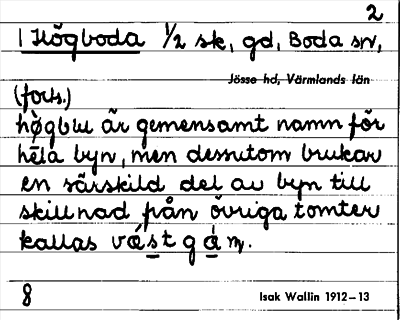 2
1 Högboda 1/2 sk, gd, Boda sn,
Jösse hd, Värmlands län
(forts.)
hø̀gbω är gemensamt namn för
hēla byn, men dessutom brukar
en särskild del av byn till
skillnad från övriga tomter
kallas
8
Isak Wallin 1912–13